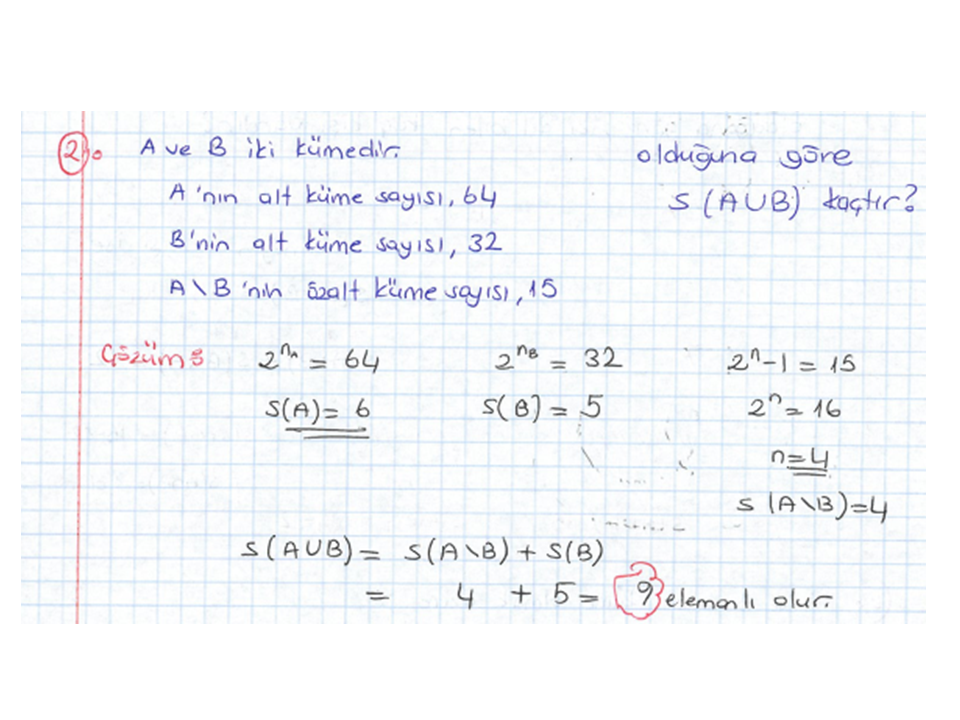 2) A ve B iki kümedir.
A'nın alt küme sayısı, 64
B'nin alt küme sayısı, 32
A\B'nin özalt küme sayısı, 15
olduğuna göre
S(AUB) kaçtır?
Çözüm:
2^nA = 64
S(A) = 6
2^nB = 32
S(B) = 5
2^n - 1 = 15
2^n = 16
n = 4
S(A\B)=4
S(AUB) = S(A\B) + S(B)
= 4 + 5 = 9 elemanlı olur.